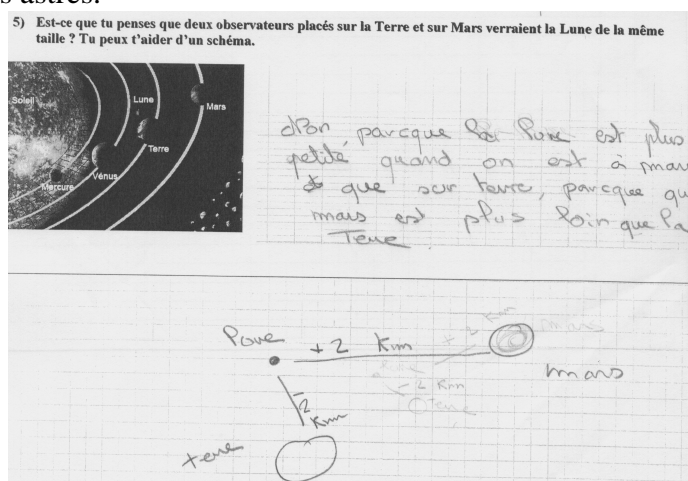 s astres.
5) Est-ce que tu penses que deux observateurs placés sur la Terre et sur Mars verraient la Lune de la même
taille ? Tu peux t'aider d'un schéma.
Soleil
Lune
Mars
Terre
Vénus
Mercure
Non, parcque la lune est plus
petite quand on est à mars
que sur terre, parcque qu
mars est plus loin que la
Terre
lune
+ 2 Km
mars
- 2 Km
terre
+ 2 Km
mars
lune
- 2 Km
Terre